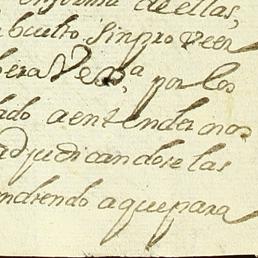 informa de ellas,
bulto, sin proveer
Vexa, por los
dado a entender nos
adjudicandose las
ndiendo a que para